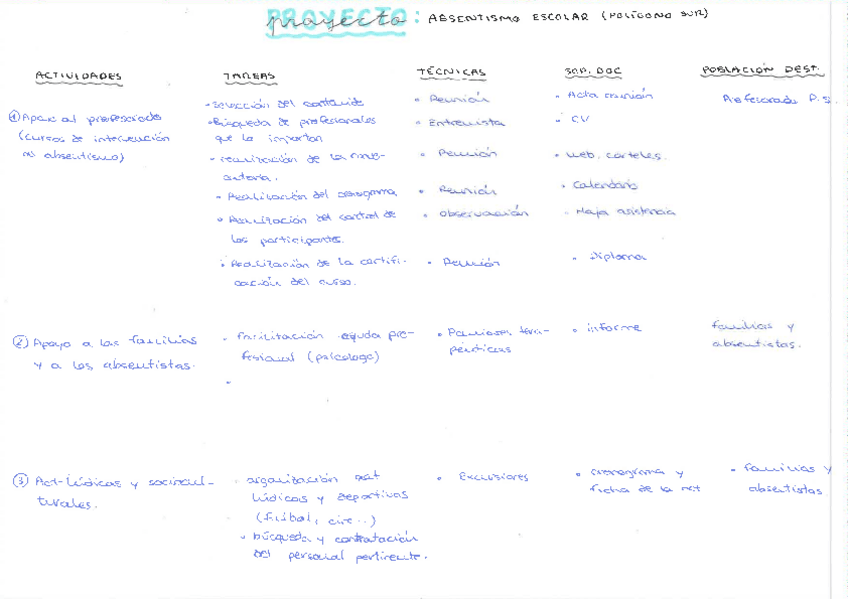 proyecto: ABSENTISMO ESCOLAR (POLÍGONO SUR)
ACTIVIDADES TAREAS TÉCNICAS SOP. DOC POBLACIÓN DEST.
① Apoyo al profesorado
(cursos de intervención
absentismo)
• Selección del contenido • Reunión • Acta reunión Profesorado P.S.
• Búsqueda de profesionales • Entrevista • CV
que lo impartan
• realización de la • Reunión • web, carteles.
• Realización del cronograma • Reunión • Calendario
• Realización del control de • Observación • Hoja asistencia
los participantes.
• Realización de la certifi- • Reunión • Diploma
cación del curso.
② Apoyo a las familias
y a los absentistas.
• Facilitación ayuda pro- • Reuniones tera- • informe familias y
fesional (psicologo) péuticas absentistas.
•
③ Act-lúdicas y sociocul-
turales.
• organización act • Excursiones • cronograma y • Familias y
lúdicas y deportivas ficha de la act absentistas
(fútbol, cine..)
• búsqueda y contratación
del personal pertinente.